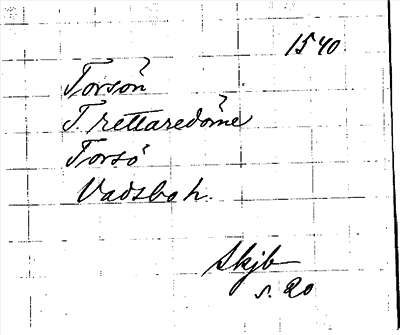 1540
Torsön
T. rettaredöme
Torsö
Vadsboh.
Skjb
s. 20